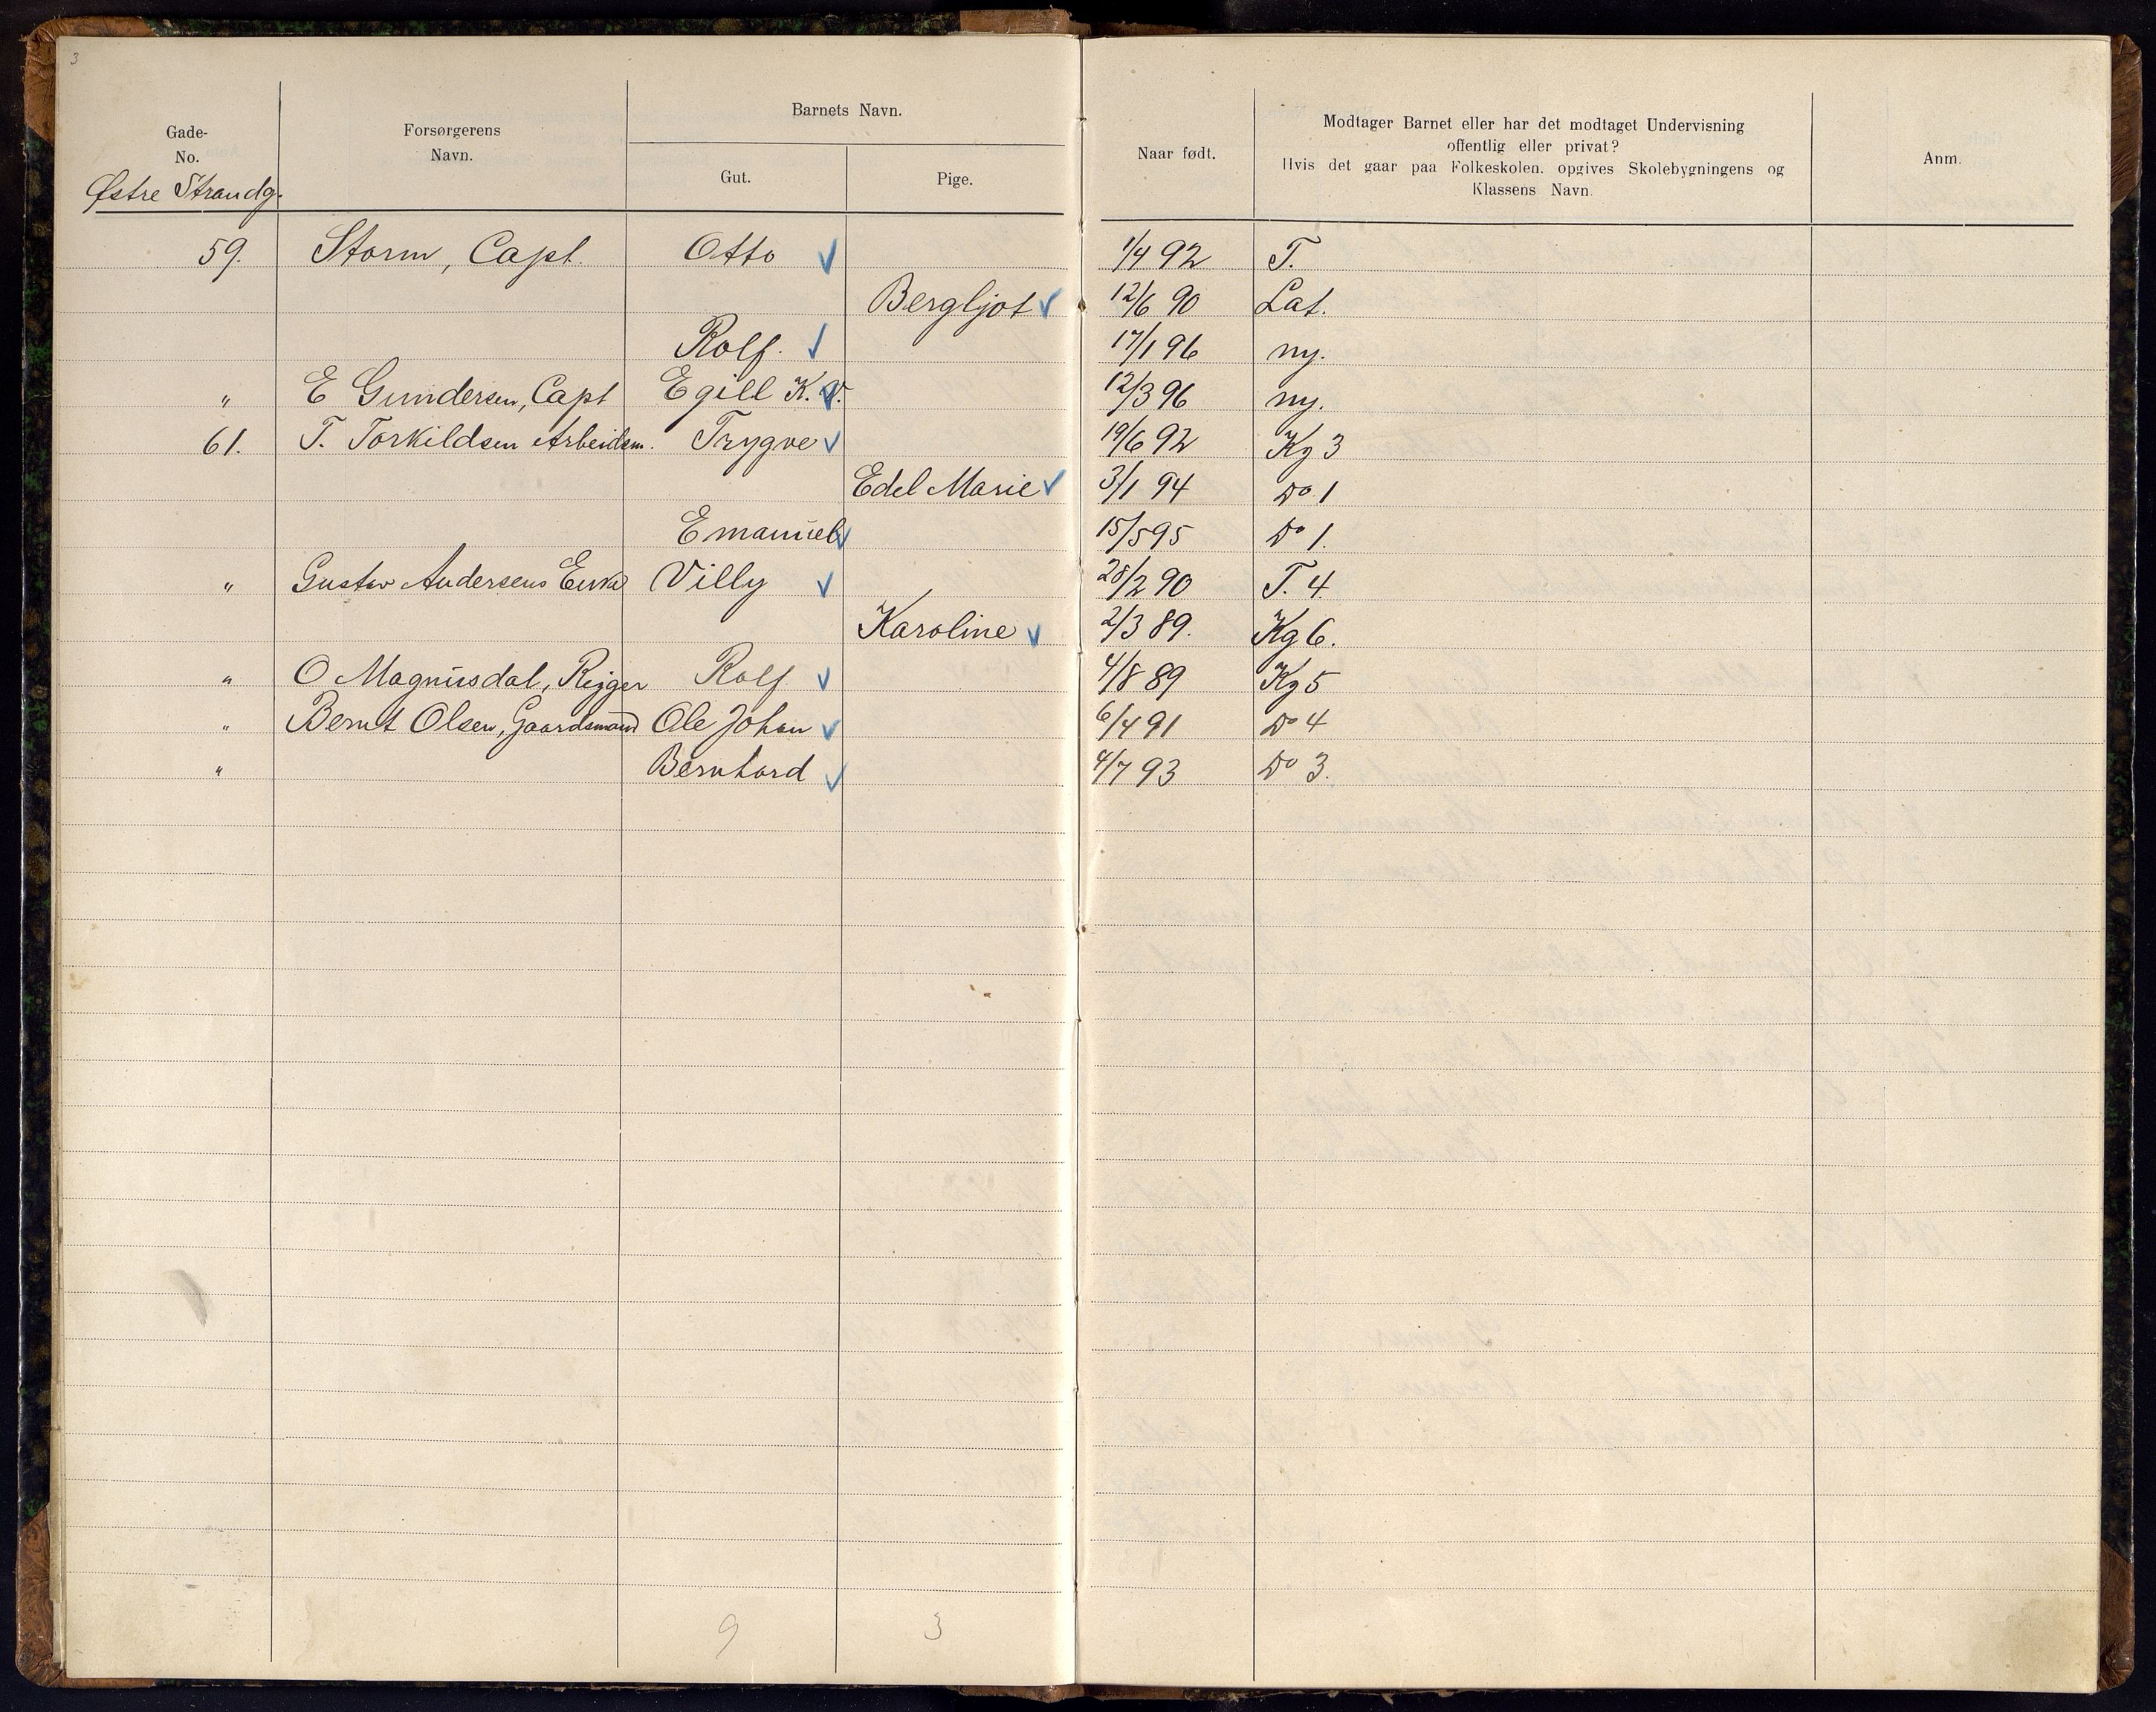 3
Gade-
No.
Østre Strandg.
Forsørgerens
Navn.
Barnets Navn.
Gut.
Pige.
Naar født.
Modtager Barnet eller har det modtaget Undervisning
offentlig eller privat?
Hvis det gaar paa Folkeskolen, opgives Skolebygningens og
Klassens Navn.
Anm.
59. Storm, Capt. Otto ✓ 1/4 92 T.
Bergljot ✓ 12/6 90 Lat.
Rolf. ✓ 17/1 96 ny.
" E Gundersen, Capt Egill K. V. ✓ 12/3 96 ny.
61. T. Torkildsen Arbeidsm. Trygve ✓ 19/6 92 Kg 3
Edel Marie ✓ 3/1 94 Do 1
Emanuel ✓ 15/5 95 Do 1.
" Gustav Andersens Enke Villy ✓ 28/2 90 T. 4.
Karoline ✓ 2/3 89. Kg 6.
" O Magnusdal, Rigger Rolf ✓ 4/8 89 Kg 5
" Bernt Olsen, Gaardsmand Ole Johan ✓ 6/4 91 Do 4
" Bernhard ✓ 4/7 93 Do 3.
9 3